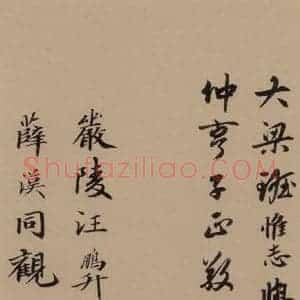 大梁班惟志
仲亨子正敬
嚴陵汪鵬升
薛漢同觀
Shufaziliao.COM